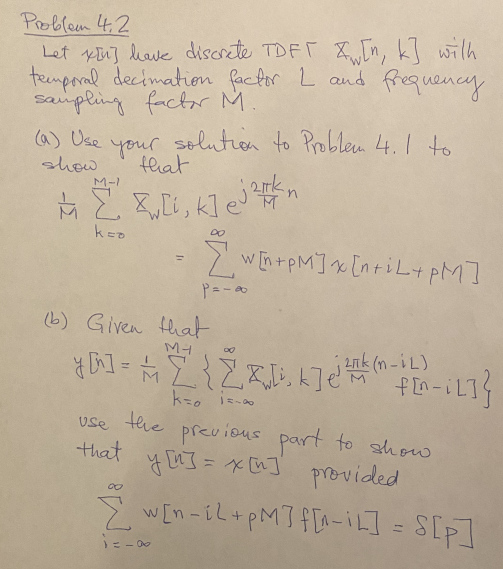 Problem 4.2
Let x[n] have discrete TDFT X_w[n, k] with
temporal decimation factor L and frequency
sampling factor M.
(a) Use your solution to Problem 4.1 to
show that
1/M ∑_{k=0}^{M-1} X_w[i, k] e^{j 2πk/M n}
= ∑_{p=-∞}^{∞} w[n+pM] x[n+iL+pM]
(b) Given that
y[n] = 1/M ∑_{k=0}^{M-1} { ∑_{i=-∞}^{∞} X_w[i, k] e^{j 2πk/M (n-iL)} f[n-iL] }
use the previous part to show
that y[n] = x[n] provided
∑_{i=-∞}^{∞} w[n-iL+pM] f[n-iL] = δ[p]